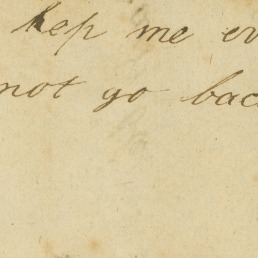 kep me ev
not go bac